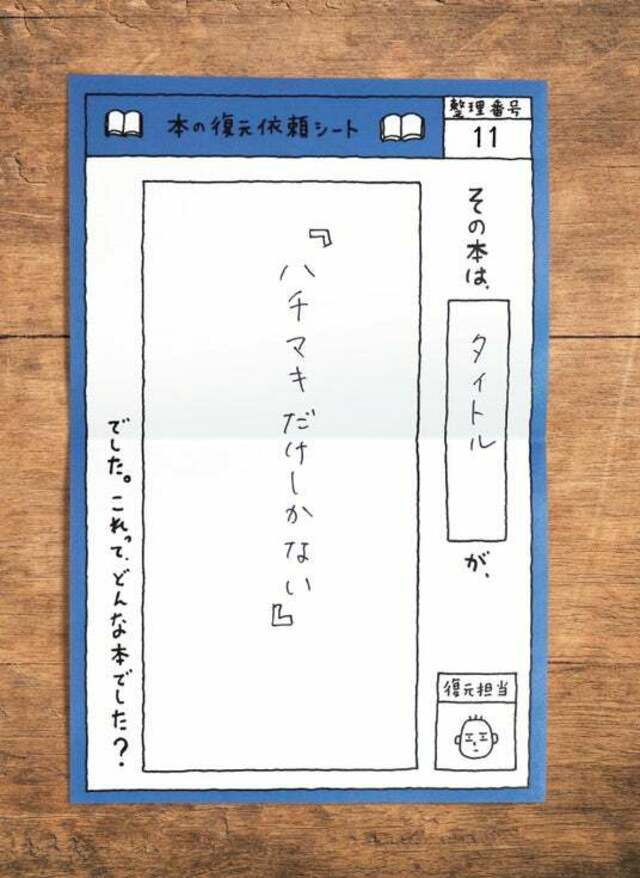 本の復元依頼シート
整理番号
11
その本は、
タイトル
が、
『ハチマキだけしかない』
でした。これって、どんな本でした?
復元担当